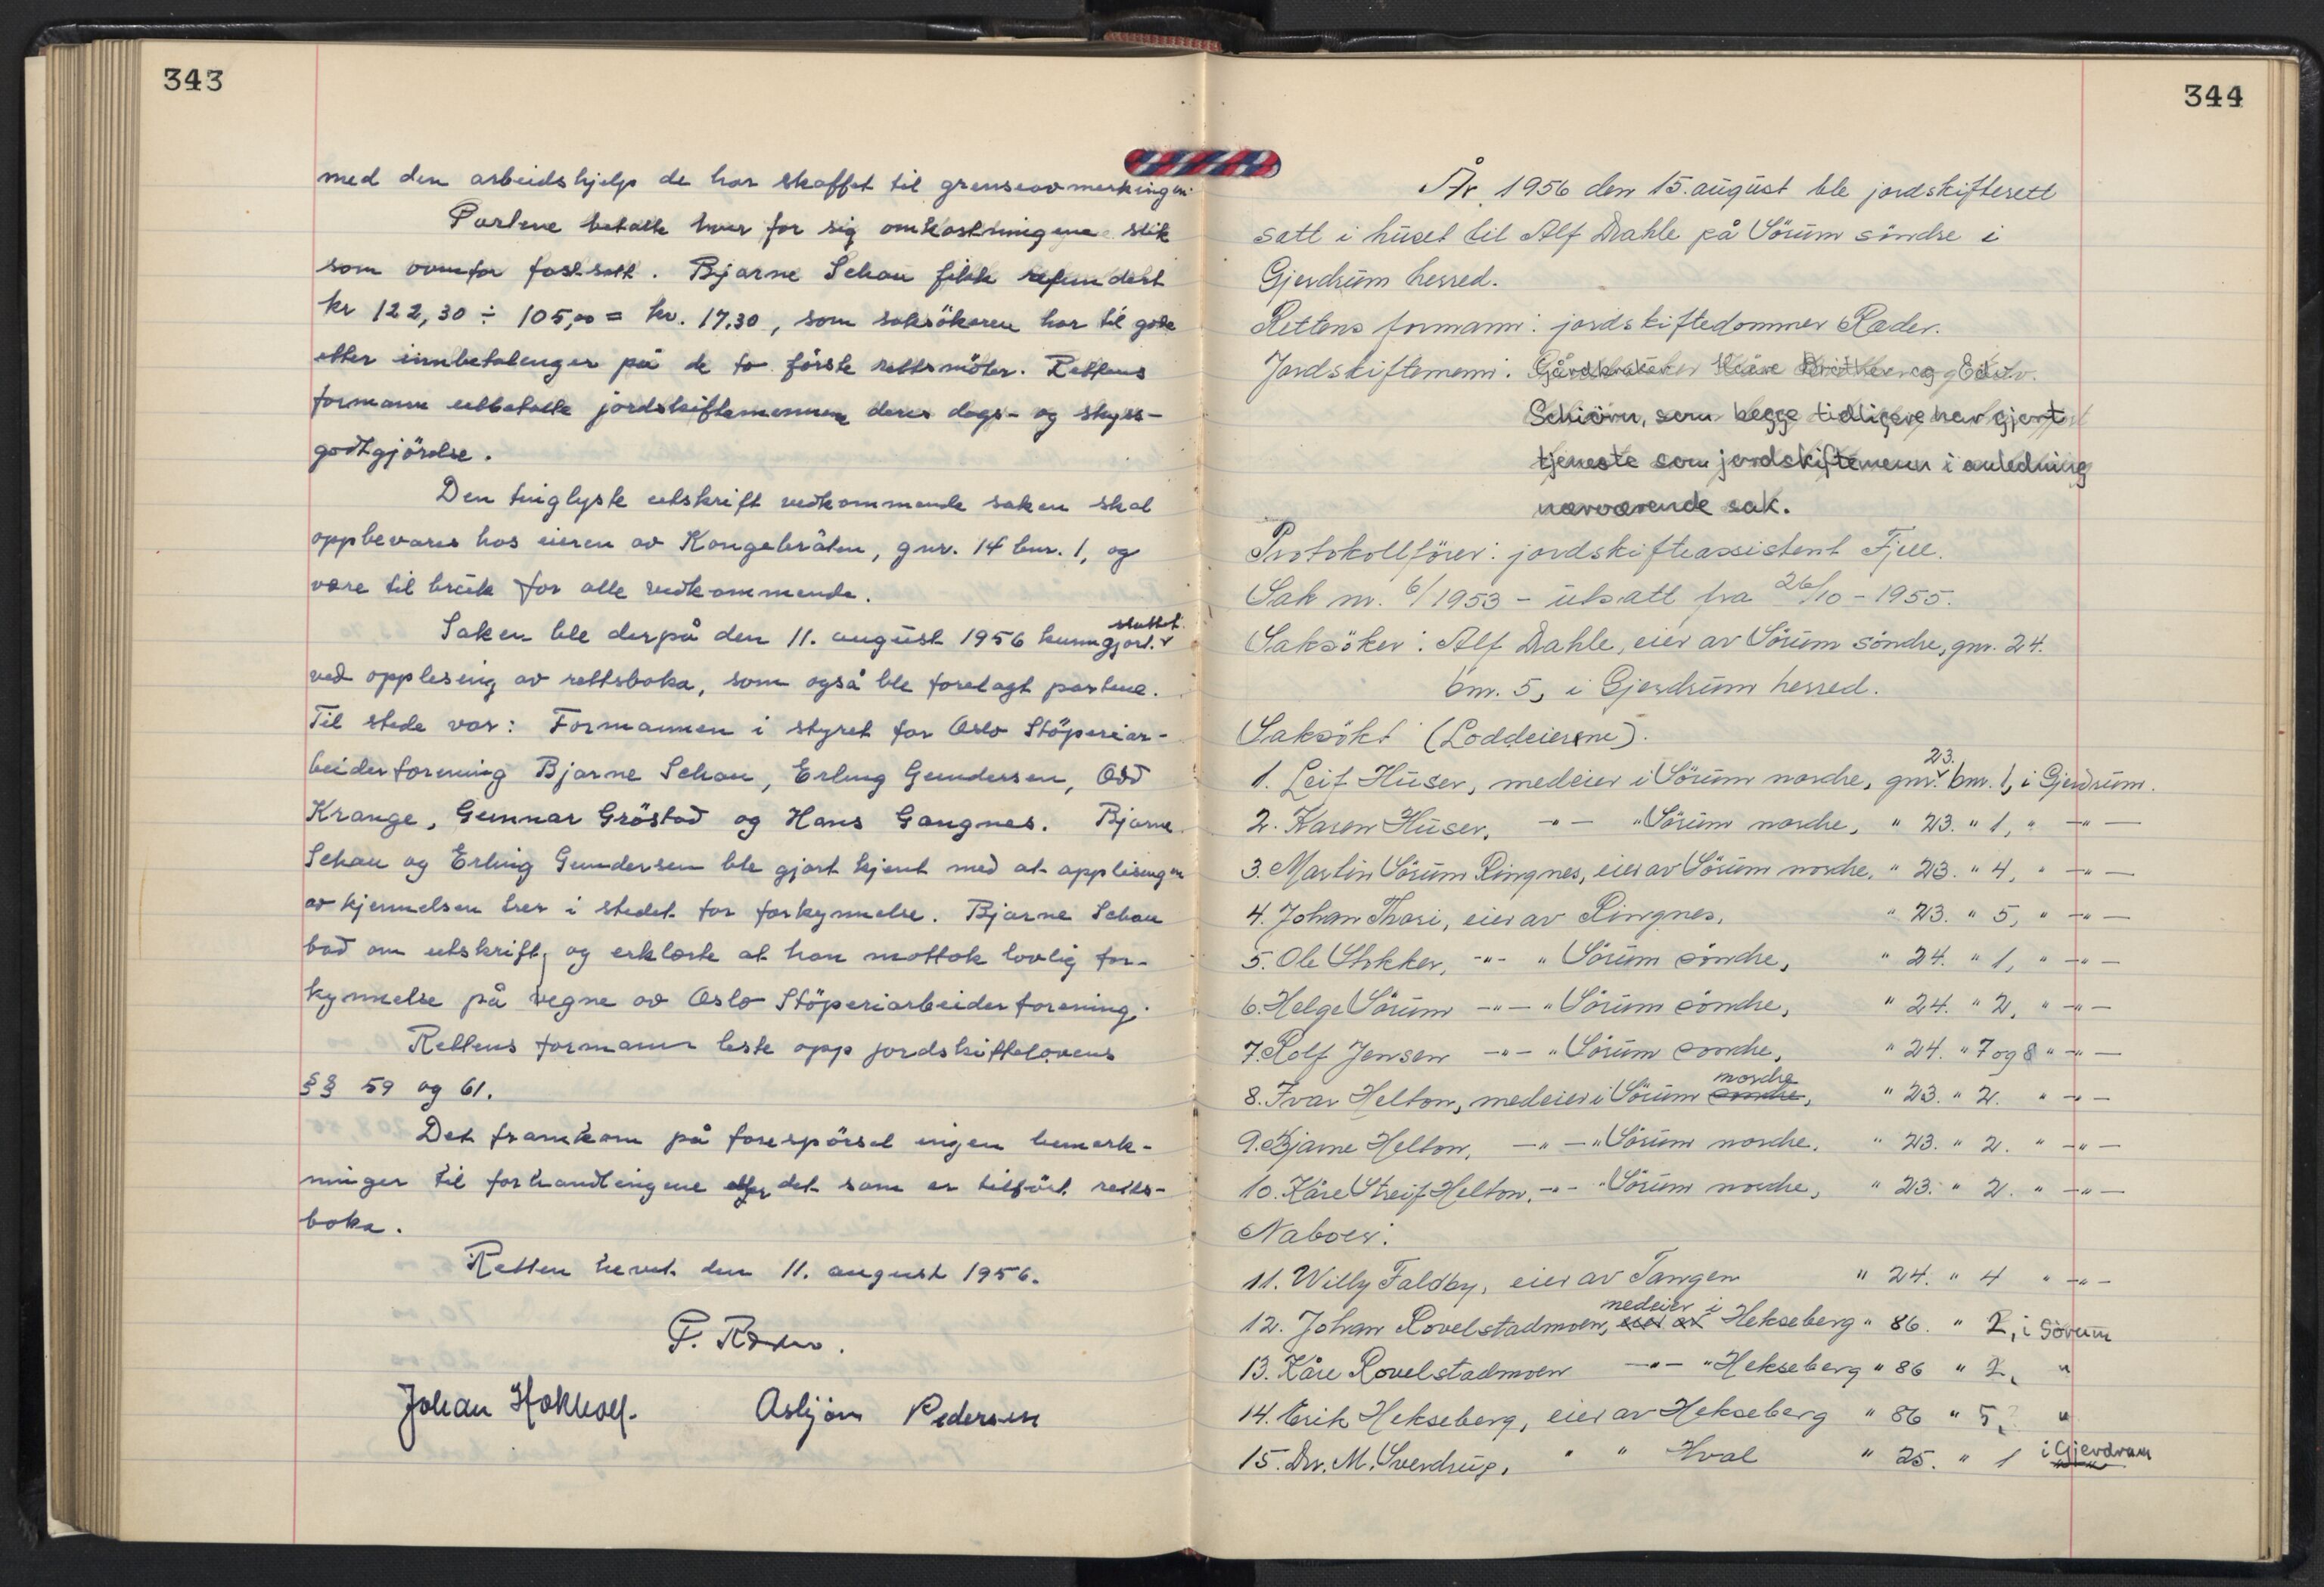 343
med den arbeidshjelp de har skaffet til grenseavmerkingen.
Partene betalte hver for sig omkostningene slik
som ovenfor fastsatt. Bjarne Schau fikk refundert
kr 122,30 ÷ 105,00 = kr. 17.30, som saksökeren har til gode
etter innbetalinger på de to förste rettsmöter. Rettens
formann utbetalte jordskiftemennene deres dags- og skyss-
godtgjörelse.
Den tinglyste utskrift vedkommende saken skal
oppbevares hos eieren av Kongebråten, gnr. 14 bnr. 1, og
være til bruk for alle vedkommende.
Saken ble derpå den 11. august 1956 kunngjort sluttet
ved opplesing av rettsboka, som også ble forelagt partene.
Til stede var: Formannen i styret for Oslo Stöperiar-
beiderforening Bjarne Schau, Erling Gundersen, Odd
Krange, Gunnar Gröstad og Hans Gangnes. Bjarne
Schau og Erling Gundersen ble gjort kjent med at opplesingen
av kjennelsen trer i stedet for forkynnelse. Bjarne Schau
bad om utskrift, og erklærte at han mottok lovlig for-
kynnelse på vegne av Oslo Stöperiarbeiderforening.
Rettens formann leste opp jordskiftelovens
§§ 59 og 61.
Det framkom på forespörsel ingen bemerk-
ninger til forhandlingene eller det som er tilfört retts-
boka.
Retten hevet den 11. august 1956.
P. Ræder.
Johan Hokholt. Asbjørn Pedersen
344
År 1956 den 15. august ble jordskifterett
satt i huset til Alf Dahle på Sörum söndre i
Gjerdrum herred.
Rettens formann: jordskiftedommer Ræder.
Jordskiftemenn: Gårdbruker Kåre og Edv.
Schiörn, som begge tidligere har gjort
tjeneste som jordskiftemenn i anledning
nærværende sak.
Protokollförer: jordskifteassistent Fjell.
Sak nr. 6/1953 - utsatt fra 26/10 - 1955.
Saksöker: Alf Dahle, eier av Sörum söndre, gnr. 24.
bnr. 5, i Gjerdrum herred.
Saksökt (Loddeierene).
1. Leif Huser, medeier i Sörum nordre, gnr. 23. bnr. 1, i Gjerdrum.
2. Karen Huser, -"- " Sörum nordre, " 23. " 1, " -"-
3. Martin Sörum Ringnes, eier av Sörum nordre, " 23. " 4, " -"-
4. Johan Thori, eier av Ringnes, " 23. " 5, " -"-
5. Ole Stokker, -"- " Sörum söndre, " 24. " 1, " -"-
6. Helge Sörum -"- " Sörum söndre, " 24. " 2, " -"-
7. Rolf Jensen -"- " Sörum söndre, " 24. " 7 og 8 " -"-
8. Ivar Helton, medeier i Sörum söndre nordre, " 23. " 2. " -"-
9. Bjarne Helton, -"- " Sörum nordre. " 23. " 2. " -"-
10. Kåre Streif Helton, -"- " Sörum nordre, " 23. " 2. " -"-
Naboer:
11. Willy Faldby, eier av Tangen " 24. " 4 " -"-
12. Johan Rovelstadmoen, eier av medeier i Hekseberg " 86. " 2, i Sörum
13. Kåre Rovelstadmoen -"- " Hekseberg " 86 " 2, "
14. Erik Hekseberg, eier av Hekseberg " 86 " 5, "
15. Dr. M. Sverdrup, " " Hval " 25. " 1 i Gjerdrum